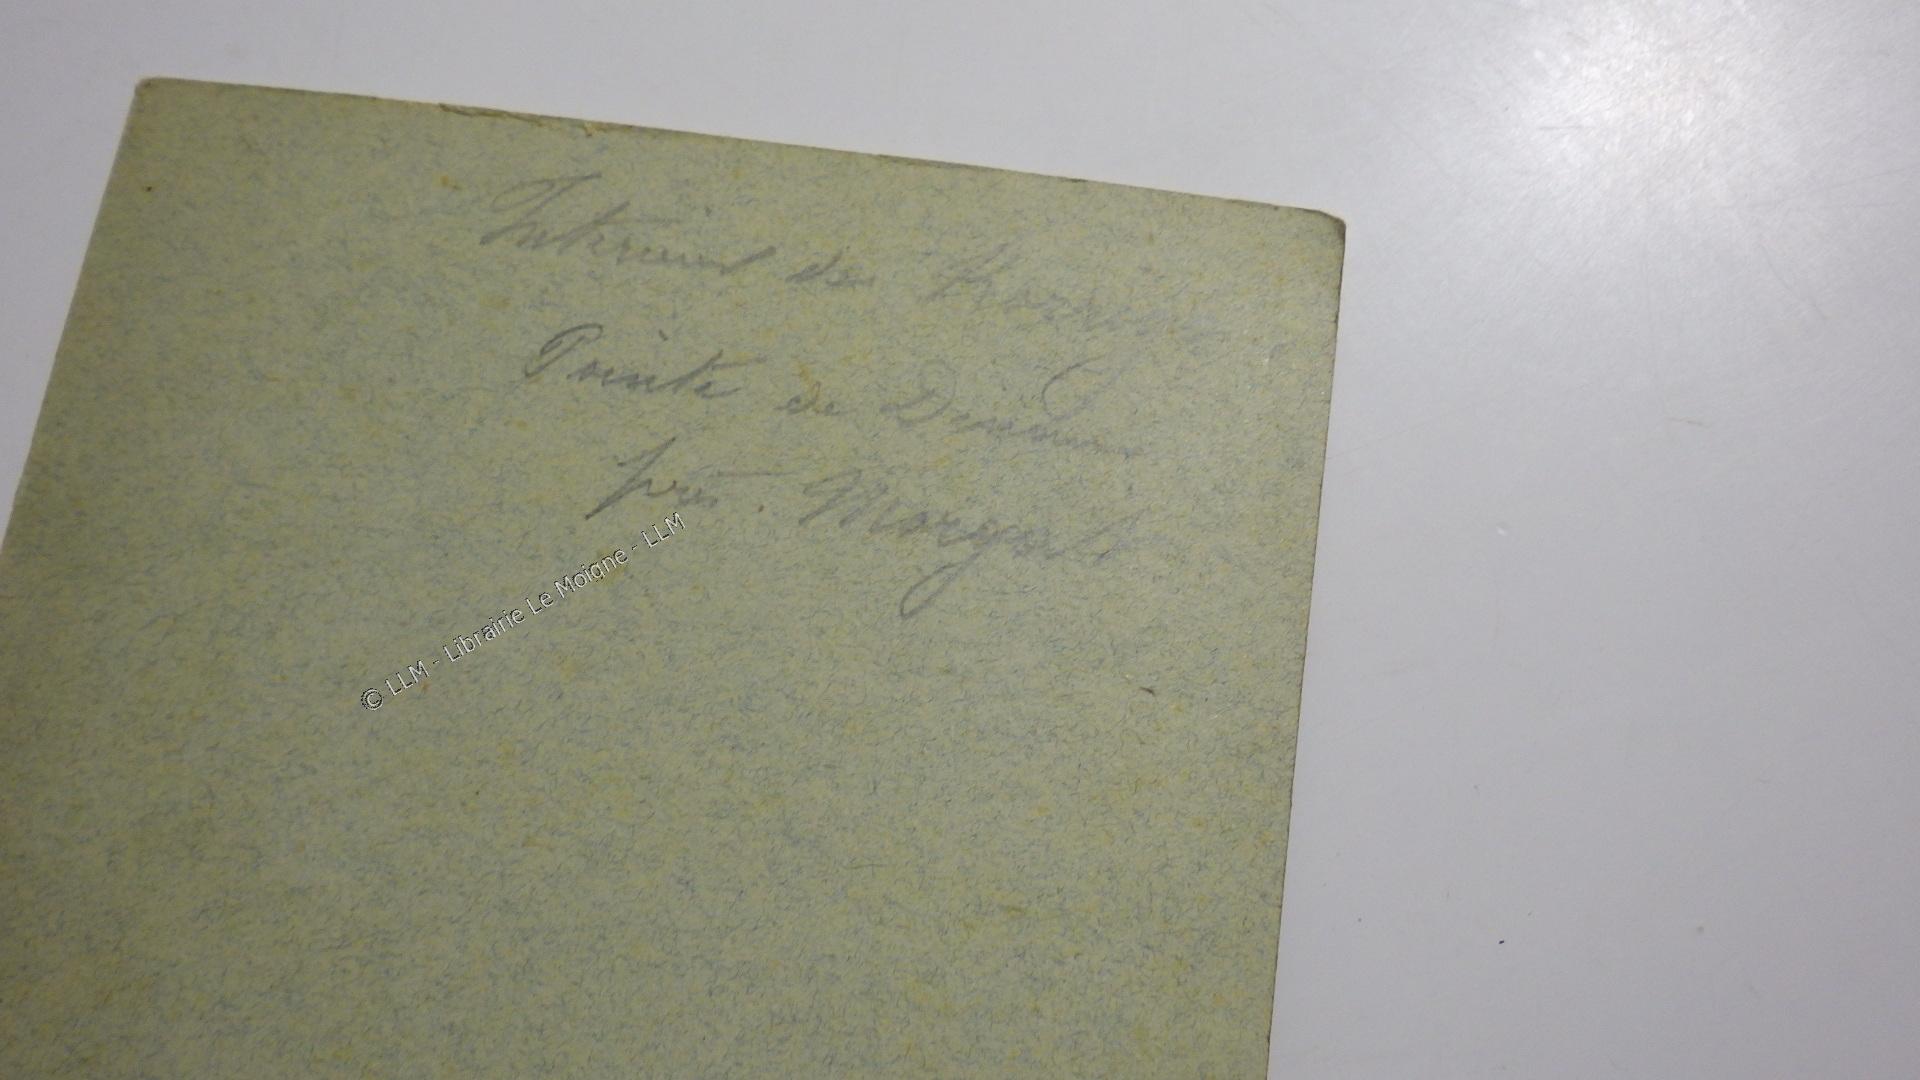 Intérieur de
Pointe de Dinan
près Morgat
© LLM - Librairie Le Moigne - LLM